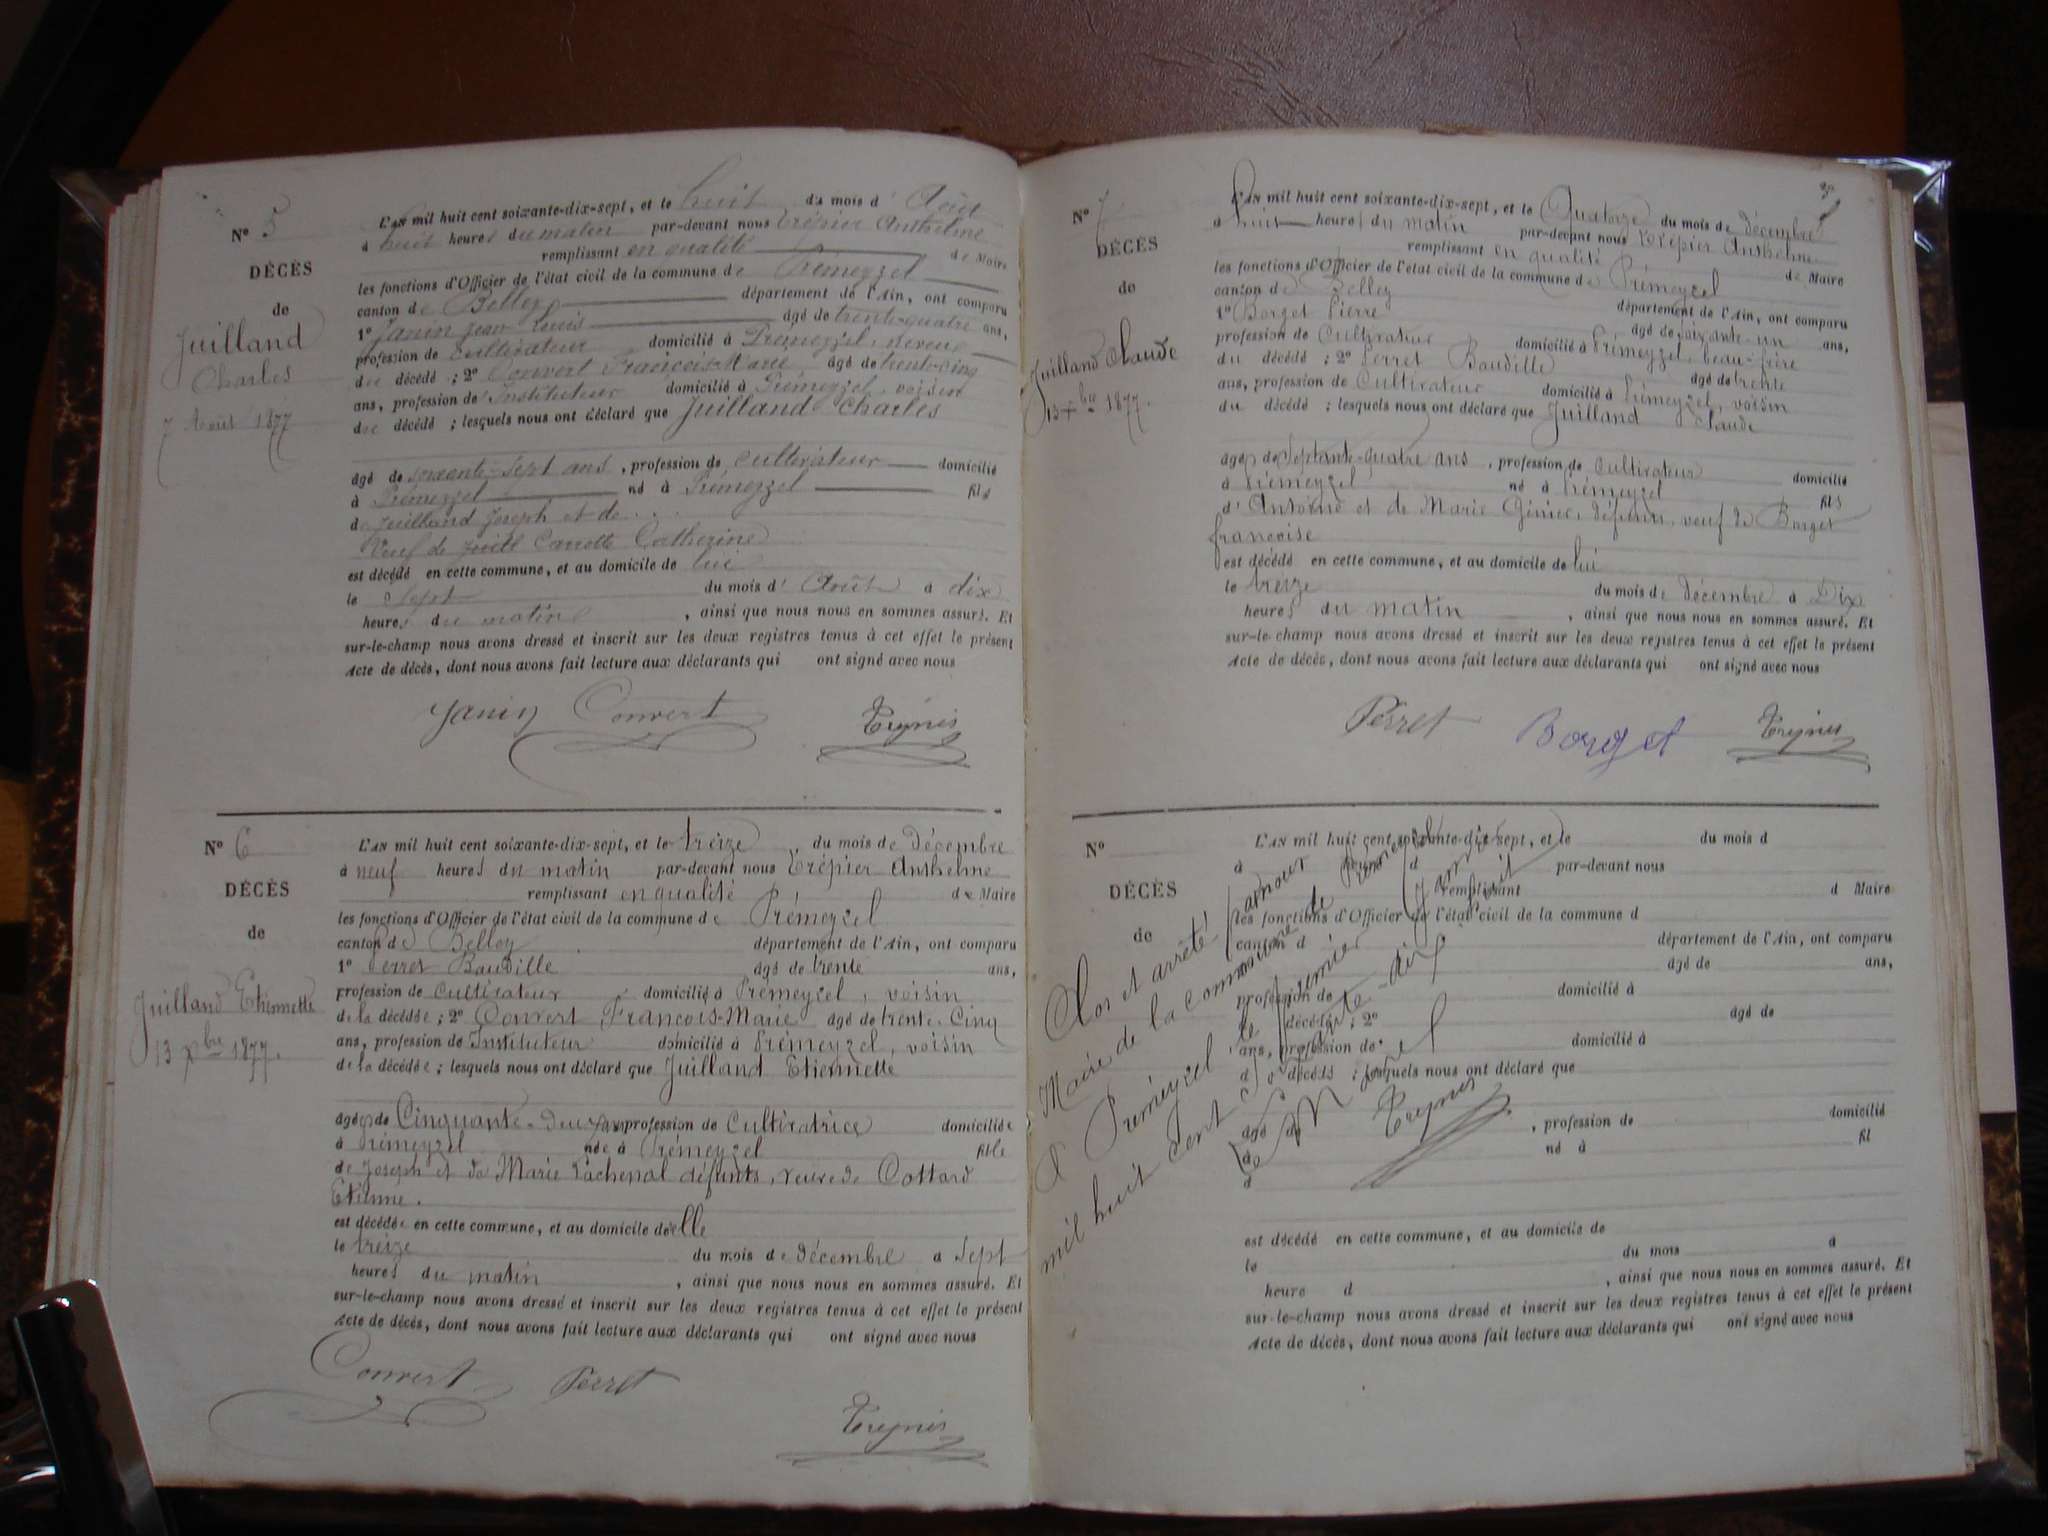 N° 5
DÉCÈS
de
Juilland
Charles
7 Août 1877
L'AN mil huit cent soixante-dix-sept, et le huit du mois d' Août
à huit heures du matin par-devant nous Trépier Anthelme
remplissant en qualité de Maire
les fonctions d'Officier de l'état civil de la commune de Prémeyzel
canton de Belley département de l'Ain, ont comparu
1° Janin Jean Louis âgé de trente-quatre ans,
profession de cultivateur domicilié à Prémeyzel, neveu
du décédé ; 2° Convert François-Marie âgé de trente-cinq
ans, profession de Instituteur domicilié à Prémeyzel, voisin
du décédé ; lesquels nous ont déclaré que Juilland Charles
âgé de soixante-sept ans, profession de cultivateur domicilié
à Prémeyzel né à Prémeyzel fils
de Juilland Joseph et de . . .
Veuf de Catherine
est décédé en cette commune, et au domicile de lui
le sept du mois d' Août à dix
heures du matin, ainsi que nous nous en sommes assuré. Et
sur-le-champ nous avons dressé et inscrit sur les deux registres tenus à cet effet le présent
Acte de décès, dont nous avons fait lecture aux déclarants qui ont signé avec nous
Janin Convert
N° 6
DÉCÈS
de
Juilland Etiennette
13 Xbre 1877.
L'AN mil huit cent soixante-dix-sept, et le treize du mois de Décembre
à neuf heures du matin par-devant nous Trépier Anthelme
remplissant en qualité de Maire
les fonctions d'Officier de l'état civil de la commune de Prémeyzel
canton de Belley département de l'Ain, ont comparu
1° Perret Baudille âgé de trente ans,
profession de cultivateur domicilié à Prémeyzel, voisin
de la décédée ; 2° Convert François-Marie âgé de trente-Cinq
ans, profession de Instituteur domicilié à Prémeyzel, voisin
de la décédée ; lesquels nous ont déclaré que Juilland Etiennette
âgée de Cinquante-deux ans profession de Cultivatrice domiciliée
à Prémeyzel née à Prémeyzel fille
de Joseph et de Marie Lachenal défunts, veuve de Cottard
Etienne.
est décédée en cette commune, et au domicile d'elle
le treize du mois de Décembre à Sept
heures du matin, ainsi que nous nous en sommes assuré. Et
sur-le-champ nous avons dressé et inscrit sur les deux registres tenus à cet effet le présent
Acte de décès, dont nous avons fait lecture aux déclarants qui ont signé avec nous
Convert Perret
N° 7
DÉCÈS
de
Juilland Claude
13 Xbre 1877.
L'AN mil huit cent soixante-dix-sept, et le Quatorze du mois de décembre
à huit heures du matin par-devant nous Trépier Anthelme
remplissant en qualité de Maire
les fonctions d'Officier de l'état civil de la commune de Prémeyzel
canton de Belley département de l'Ain, ont comparu
1° Borget Pierre âgé de soixante-un ans,
profession de Cultivateur domicilié à Prémeyzel, beau-frère
du décédé ; 2° Perret Baudille âgé de trente
ans, profession de Cultivateur domicilié à Prémeyzel, voisin
du décédé ; lesquels nous ont déclaré que Juilland Claude
âgé de Septante-quatre ans, profession de Cultivateur domicilié
à Prémeyzel né à Prémeyzel fils
d'Antoine et de Marie défunts, veuf de Borget
françoise
est décédé en cette commune, et au domicile de lui
le treize du mois de décembre à Dix
heures du matin, ainsi que nous nous en sommes assuré. Et
sur-le-champ nous avons dressé et inscrit sur les deux registres tenus à cet effet le présent
Acte de décès, dont nous avons fait lecture aux déclarants qui ont signé avec nous
Perret Borget
N°
DÉCÈS
de
L'AN mil huit cent soixante-dix-sept, et le du mois d
à heures d par-devant nous
remplissant d Maire
les fonctions d'Officier de l'état civil de la commune d
canton d département de l'Ain, ont comparu
âgé de ans,
profession de domicilié à
décédé ; 2° âgé de
ans, profession de domicilié à
d décédé ; lesquels nous ont déclaré que
âgé de , profession de domicilié
à né à fil
d
est décédé en cette commune, et au domicile de
le du mois à
heure d , ainsi que nous nous en sommes assuré. Et
sur-le-champ nous avons dressé et inscrit sur les deux registres tenus à cet effet le présent
Acte de décès, dont nous avons fait lecture aux déclarants qui ont signé avec nous
Clos et arrêté par nous
Maire de la commune de
à Prémeyzel le premier Janvier
mil huit cent Septante-dix huit